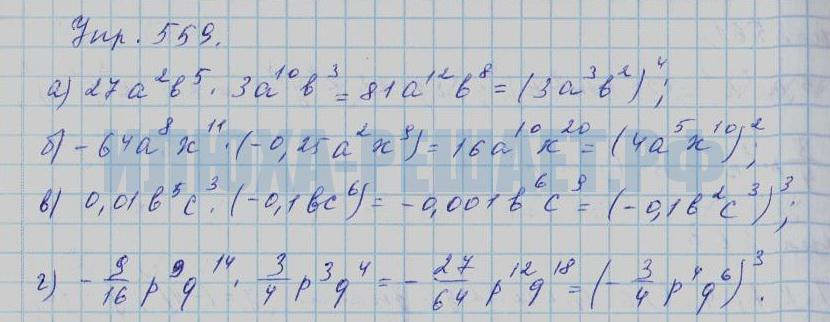 Упр. 559.
а) 27a²b⁵ · 3a¹⁰b³ = 81a¹²b⁸ = (3a³b²)⁴;
б) -64a⁸x¹¹ · (-0,25a²x⁹) = 16a¹⁰x²⁰ = (4a⁵x¹⁰)²;
в) 0,01b⁵c³ · (-0,1bc⁶) = -0,001b⁶c⁹ = (-0,1b²c³)³;
г) - 9/16 p⁹q¹⁴ · 3/4 p³q⁴ = - 27/64 p¹²q¹⁸ = (- 3/4 p⁴q⁶)³.
ИЛЮХА-РЕШАЕТ.РФ